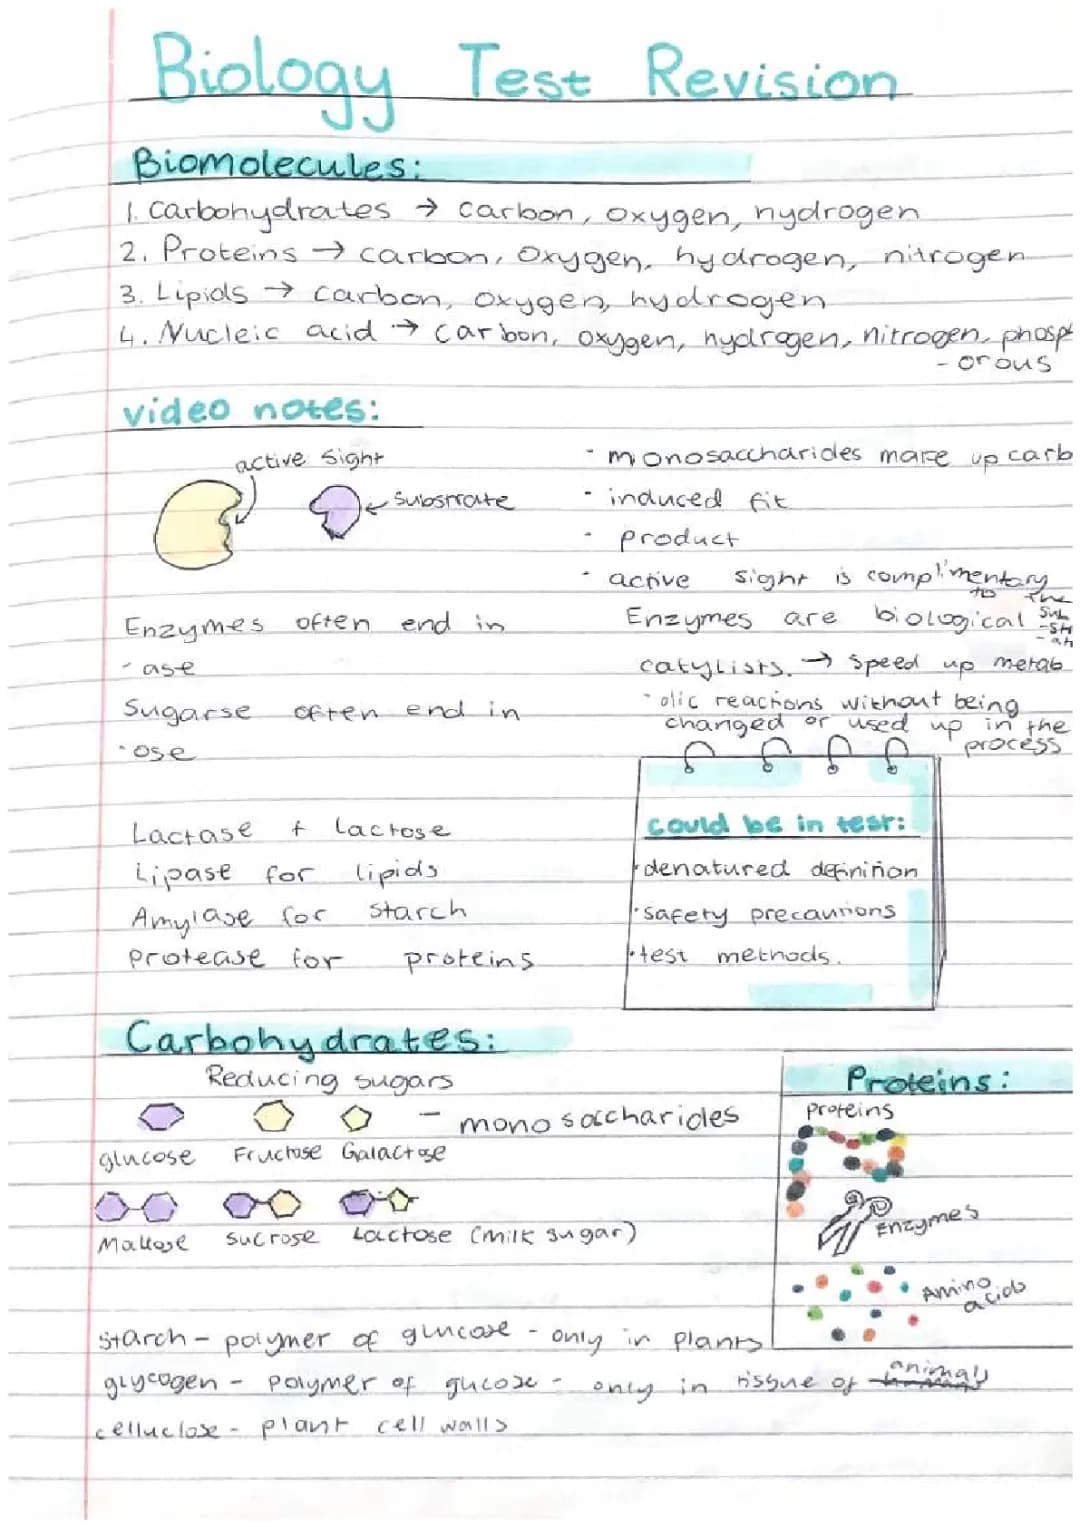 Biology Test Revision
Biomolecules:
1. Carbohydrates → carbon, oxygen, hydrogen
2. Proteins → carbon, oxygen, hydrogen, nitrogen
3. Lipids → carbon, oxygen, hydrogen
4. Nucleic acid → carbon, oxygen, hydrogen, nitrogen, phosph
- orous
video notes:
active sight
substrate
- monosaccharides make up carb
- induced fit
- product
- active sight is complimentary
to the
sub
-str
-at
Enzymes often end in
- ase
Sugarse often end in
- ose
Enzymes are biological
catylists. → speed up metab
- olic reactions without being
changed or used up in the
process
Lactase + lactose
Lipase for lipids
Amylase for starch
protease for proteins
could be in test:
• denatured definition
• safety precautions
• test methods.
Carbohydrates:
Reducing sugars
- monosaccharides
glucose Fructose Galactose
Maltose sucrose Lactose (milk sugar)
Proteins:
proteins
Enzymes
Amino
acids
starch - polymer of glucose - only in plants
glycogen - polymer of glucose - only in tissue of animals
celluclose - plant cell walls